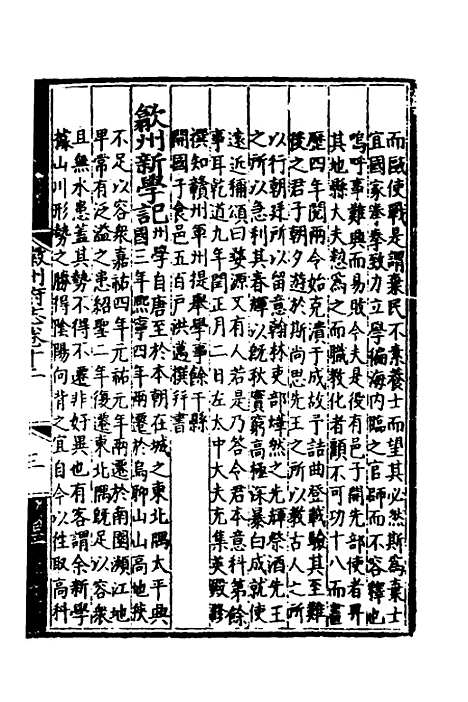 而敺使戰是謂棄民不素養士而望其必然斯為棄士
宜國家拳拳致力立學徧海內臨之官師而不容釋也
嗚呼事難興而易敗今夫是役有邑子開先部使者畀
其地縣大夫勑為之而職教化者顧不可功十八而畫
歷四年閱兩令始克潰于成故予詰曲登載驗其至難
後之君子朝夕遊於斯尚思先王之所以教古人之所
以行朝廷所以留意翰林吏部煒然之先輝祭酒先王
之所以急判其春輝以既秋實窮高極深暴白成就使
遠近稱頌曰婺源又有人若是乃答今君本意科第餘
事耳乾道九年閏正月二日左太中大夫充集英殿修
撰知贛州軍州提舉學事餘干縣
開國子食邑五百戶洪邁撰行書
歙州新學記
州學自唐至於本朝在城之東北隅太平興
國三年熙寧四年兩遷於烏聊山山高地狹
不足以容衆嘉祐四年元祐元年兩遷於南園瀕江地
卑常有泛溢之患紹聖二年復遷東北隅既足以容衆
且無水患蓋其勢不得不遷非好異也有客謂余新學
據山川形勢之勝得陰陽向背之宜自今以往取高科
徽州府志卷十二
三